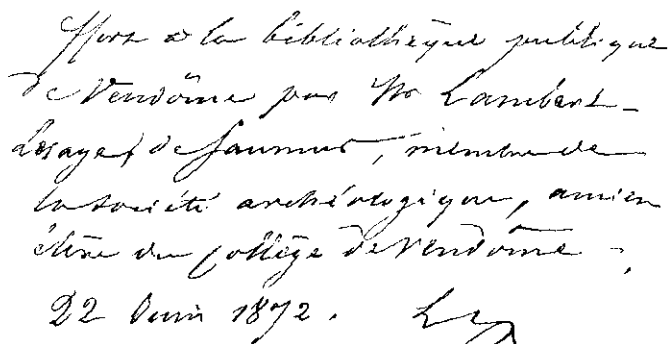 offert à la bibliothèque publique
de Vendôme par Mr Lambert-
Lesage, de Saumur, membre de
la Société archéologique, ancien
élève du collège de Vendôme.
22 Juin 1872.